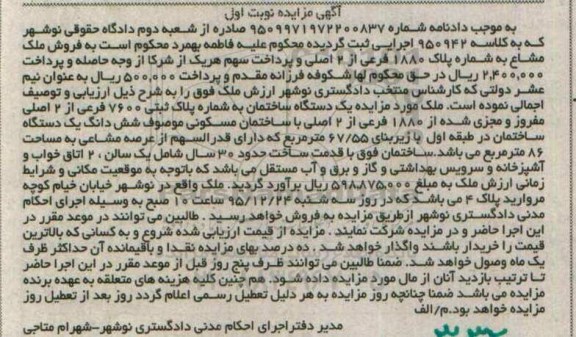 آگهی مزایده نوبت اول
به موجب دادنامه شماره ۹۵۰۹۹۷۱۹۷۲۲۰۰۸۳۷ صادره از شعبه دوم دادگاه حقوقی نوشهر
که به کلاسه ۹۵۰۹۴۲ اجرایی ثبت گردیده محکوم علیه فاطمه بهمرد محکوم است به فروش ملک
مشاع به شماره پلاک ۱۸۸۰ فرعی از ۲ اصلی و پرداخت سهم هریک از شرکا از وجه حاصله و پرداخت
۲,۴۰۰,۰۰۰ ریـال در حق محکوم لها شکوفه فرزانه مقدم و پرداخت ۵۰۰,۰۰۰ ریال به عنوان نیم
عشر دولتی که کارشناس منتخب دادگستری نوشهر ارزش ملک فوق را به شرح ذیل ارزیابی و توصیف
اجمالی نموده است. ملک مورد مزایده یک دستگاه ساختمان به شماره پلاک ثبتی ۷۶۰۰ فرعی از ۲ اصلی
مفروز و مجزی شده از ۱۸۸۰ فرعی از ۲ اصلی با ساختمان مسکونی موصوف شش دانگ یک دستگاه
ساختمان در طبقه اول با زیربنای ۶۷/۵۵ مترمربع که دارای قدرالسهم از عرصه مشاعی به مساحت
۸۶ مترمربع می باشد.ساختمان فوق با قدمت ساخت حدود ۳۰ سال شامل یک سالن ، ۲ اتاق خواب و
آشپزخانه و سرویس بهداشتی و گاز و برق و آب مستقل می باشد که باتوجه به موقعیت مکانی و شرایط
زمانی ارزش ملک به مبلغ ۵۹۸،۸۷۵،۰۰۰ ریال برآورد گردید. ملک واقع در نوشهر خیابان خیام کوچه
مروارید پلاک ۴ می باشد که در روز سه شنبه ۹۵/۱۲/۲۴ ساعت ۱۰ صبح به وسیله اجرای احکام
مدنی دادگستری نوشهر ازطریق مزایده به فروش خواهد رسید . طالبین می توانند در موعد مقرر در
این اجرا حاضر و در مزایده شرکت نمایند . مزایده از قیمت ارزیابی شده شروع و به کسانی که بالاترین
قیمت را خریدار باشند واگذار خواهد شد . ده درصد بهای مزایده نقدا و باقیمانده آن حداکثر ظرف
یک ماه وصول خواهد شد. ضمنا طالبین می توانند ظرف پنج روز قبل از موعد مقرر در این اجرا حاضر
تـا ترتیب بازدید آنان از مال مورد مزایده داده شود. هم چنین کلیه هزینه های متعلقه به عهده برنده
مزایده می باشد ضمنا چنانچه روز مزایده به هر دلیل تعطیل رسمی اعلام گردد روز بعد از تعطیل روز
مزایده خواهد بود.م/الف
مدیر دفتراجرای احکام مدنی دادگستری نوشهر-شهرام متاجی